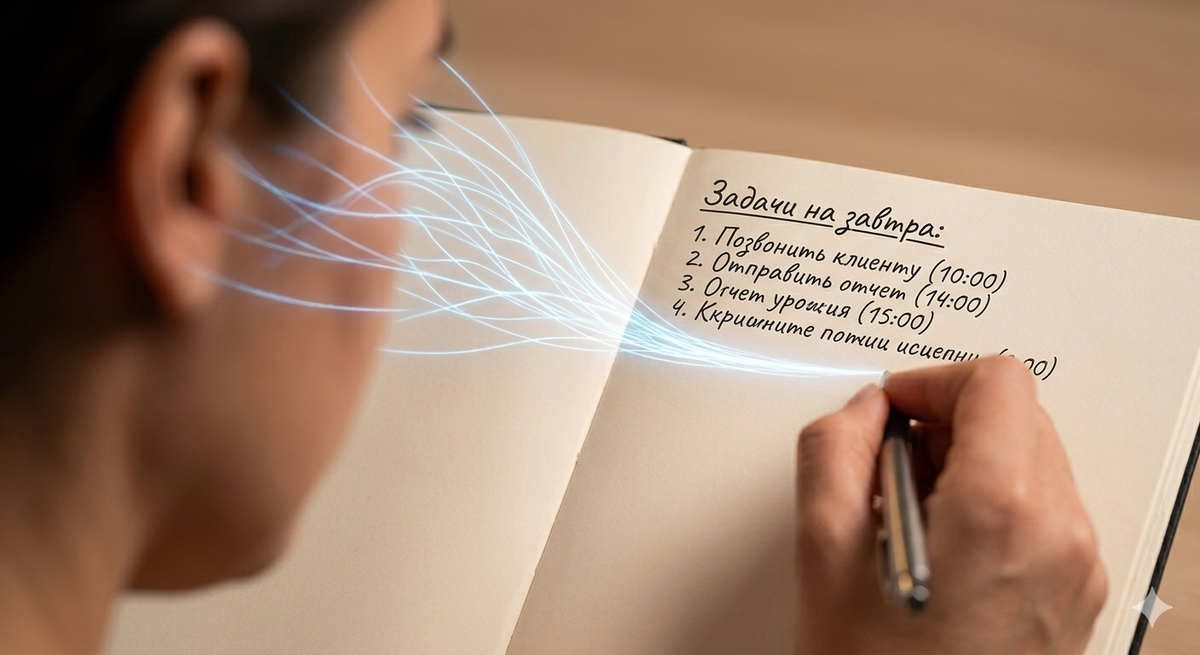 Задачи на завтра:
1. Позвонить клиенту (10:00)
2. Отправить отчет (14:00)
3. Отчет урожия (15:00)
4. Ккришните потии